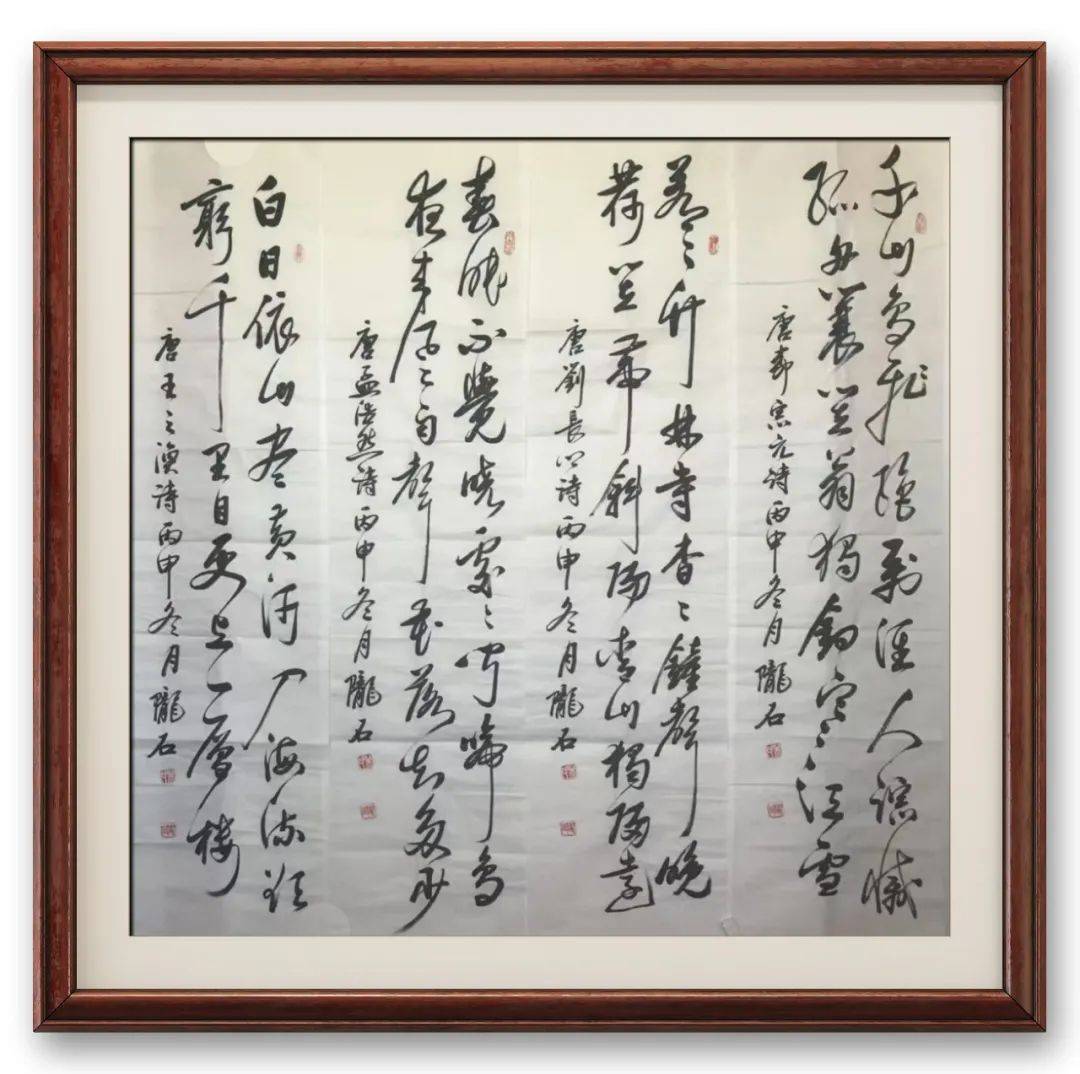 千山鸟飛絶萬徑人踪滅
孤舟蓑笠翁獨釣寒江雪
唐柳宗元诗丙申冬月隴石
蒼々竹林寺杳々鐘聲晚
荷笠帶斜陽青山獨歸遠
唐劉長卿诗丙申冬月隴石
春眠不覺曉處々聞啼鸟
夜来風雨聲花落知多少
唐孟浩然诗丙申冬月隴石
白日依山盡黄河入海流欲
窮千里目更上一層樓
唐王之渙诗丙申冬月隴石